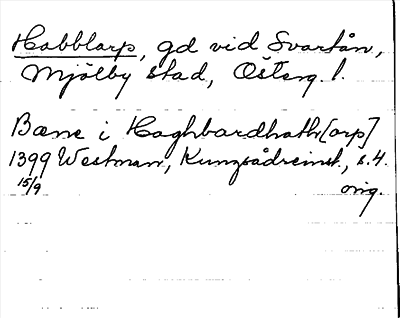 Habblarp, gd vid Svartån,
Mjölby stad, Österg. l.
Bæne i Haghbardhath[orp]
1399 Westman, Kungsådreinst., s. 4.
15/9 orig.